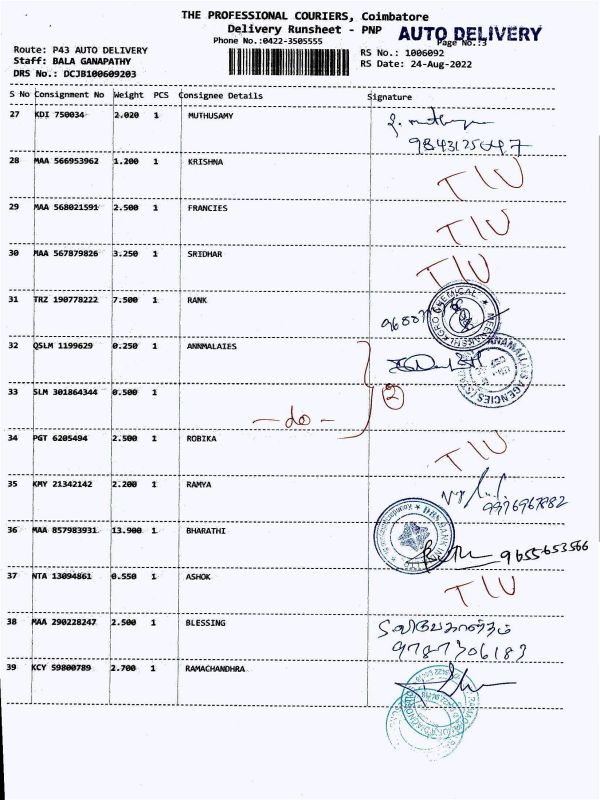 THE PROFESSIONAL COURIERS, Coimbatore
Delivery Runsheet - PNP
AUTO DELIVERY
Phone No.:0422-3505555
Page No.:3
Route: P43 AUTO DELIVERY
RS No.: 1006092
Staff: BALA GANAPATHY
RS Date: 24-Aug-2022
DRS No.: DCJB100609203
S No Consignment No Weight PCS Consignee Details Signature
27 KDI 750034 2.020 1 MUTHUSAMY
28 MAA 566953962 1.200 1 KRISHNA TIU
29 MAA 568021591 2.500 1 FRANCIES TIU
30 MAA 567879826 3.250 1 SRIDHAR TIU
31 TRZ 190778222 7.500 1 RANK
AGRO CHEMICAL
32 QSLM 1199629 0.250 1 ANNMALAIES
ANAMALLAIS AGENCIES
33 SLM 301864344 0.500 1
- do - 2
34 PGT 6205494 2.500 1 ROBIKA TIU
35 KMY 21342142 2.200 1 RAMYA
9376967882
36 MAA 857983931 13.900 1 BHARATHI
DBS BANK
9655653566
37 NTA 13094861 0.550 1 ASHOK TIU
38 MAA 290228247 2.500 1 BLESSING
9787306183
39 KCY 59800789 2.700 1 RAMACHANDHRA